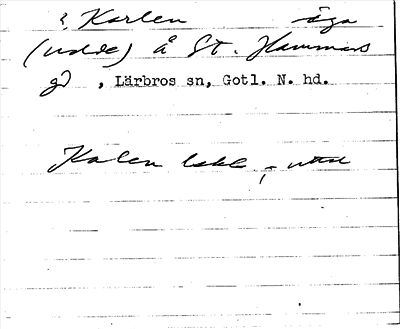 ? Karlen äga
(udde) å St. Hammars
gd , Lärbros sn, Gotl. N. hd.
Kalen